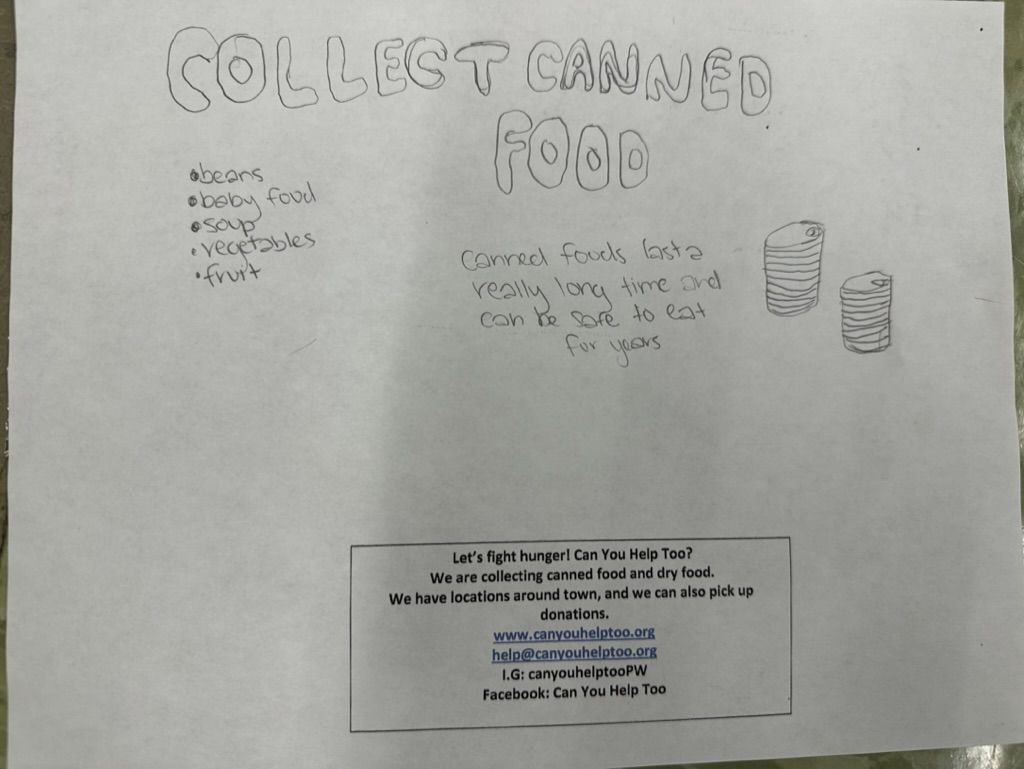 COLLECT CANNED
FOOD
•beans
•baby food
•soup
•vegetables
•fruit
canned foods last a
really long time and
can be safe to eat
for years
Let's fight hunger! Can You Help Too?
We are collecting canned food and dry food.
We have locations around town, and we can also pick up
donations.
www.canyouhelptoo.org
help@canyouhelptoo.org
I.G: canyouhelptooPW
Facebook: Can You Help Too